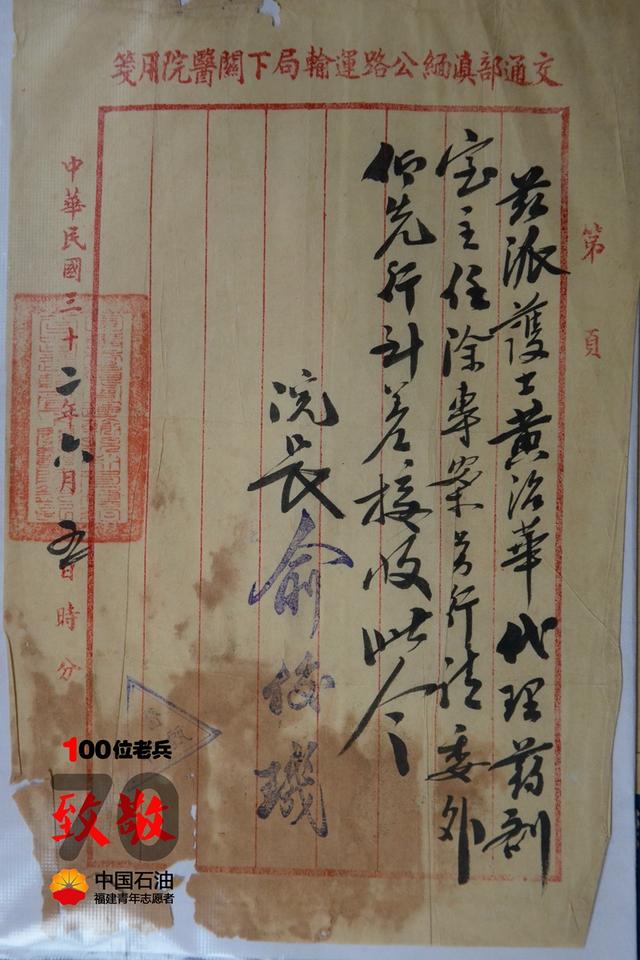 交通部滇緬公路運輸局下關醫院用箋
第 頁
茲派護士黃治華代理葯劑
室主任除專案另行請委外
仰先行到差接收此令
院長俞 璣
中華民國三十二年六月五日時分
100位老兵
70
致敬
中国石油
福建青年志愿者